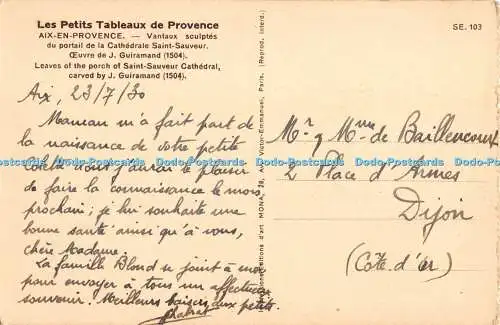 Les Petits Tableaux de Provence
AIX-EN-PROVENCE. — Vantaux sculptés
du portail de la Cathédrale Saint-Sauveur.
Œuvre de J. Guiramand (1504).
Leaves of the porch of Saint-Sauveur Cathédral,
carved by J. Guiramand (1504).
SE. 103
Aix, 23/7/30
Maman m'a fait part de
la naissance de votre petite
vous j'aurai le plaisir
de faire la connaissance le mois
prochain ; je lui souhaite une
bonne santé ainsi qu'à vous,
chère Madame.
La famille Blond se joint à moi
pour envoyer à tous un affectueux
souvenir. Meilleurs baisers aux petits
Mr & Mme de Baillencourt
2 Place d'Armes
Dijon
(Côte d'or)
d'art MONA, 26, Av. Victor-Emmanuel, Paris. (Reprod. interd.)
Dodo-Postcards Dodo-Postcards Dodo-Postcards Dodo-Postcards Dodo-Postcards Dodo-Postcards